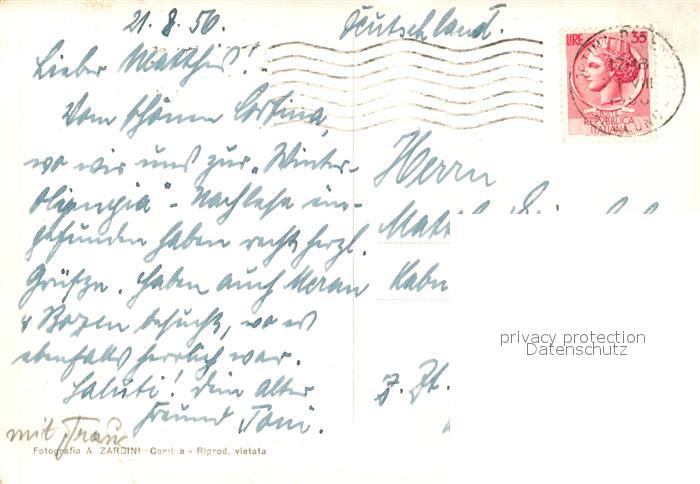 21.8.56. Deutschland.
Lieber Matthis!
Vom schönen Cortina,
wo wir uns zur „Winter-
olympia“-Nachlese ein-
gefunden haben recht herzl.
Grüße. Haben auch Meran
u Bozen besucht, wo es
ebenfalls herrlich war.
Saluti! Dein alter
Freund Toni.
mit Frau
Fotografia A. ZARDINI Cortina - Riprod. vietata
LIRE 35
POSTE
REPVBBLICA
ITALIANA
Herrn
z. Zt.
privacy protection
Datenschutz